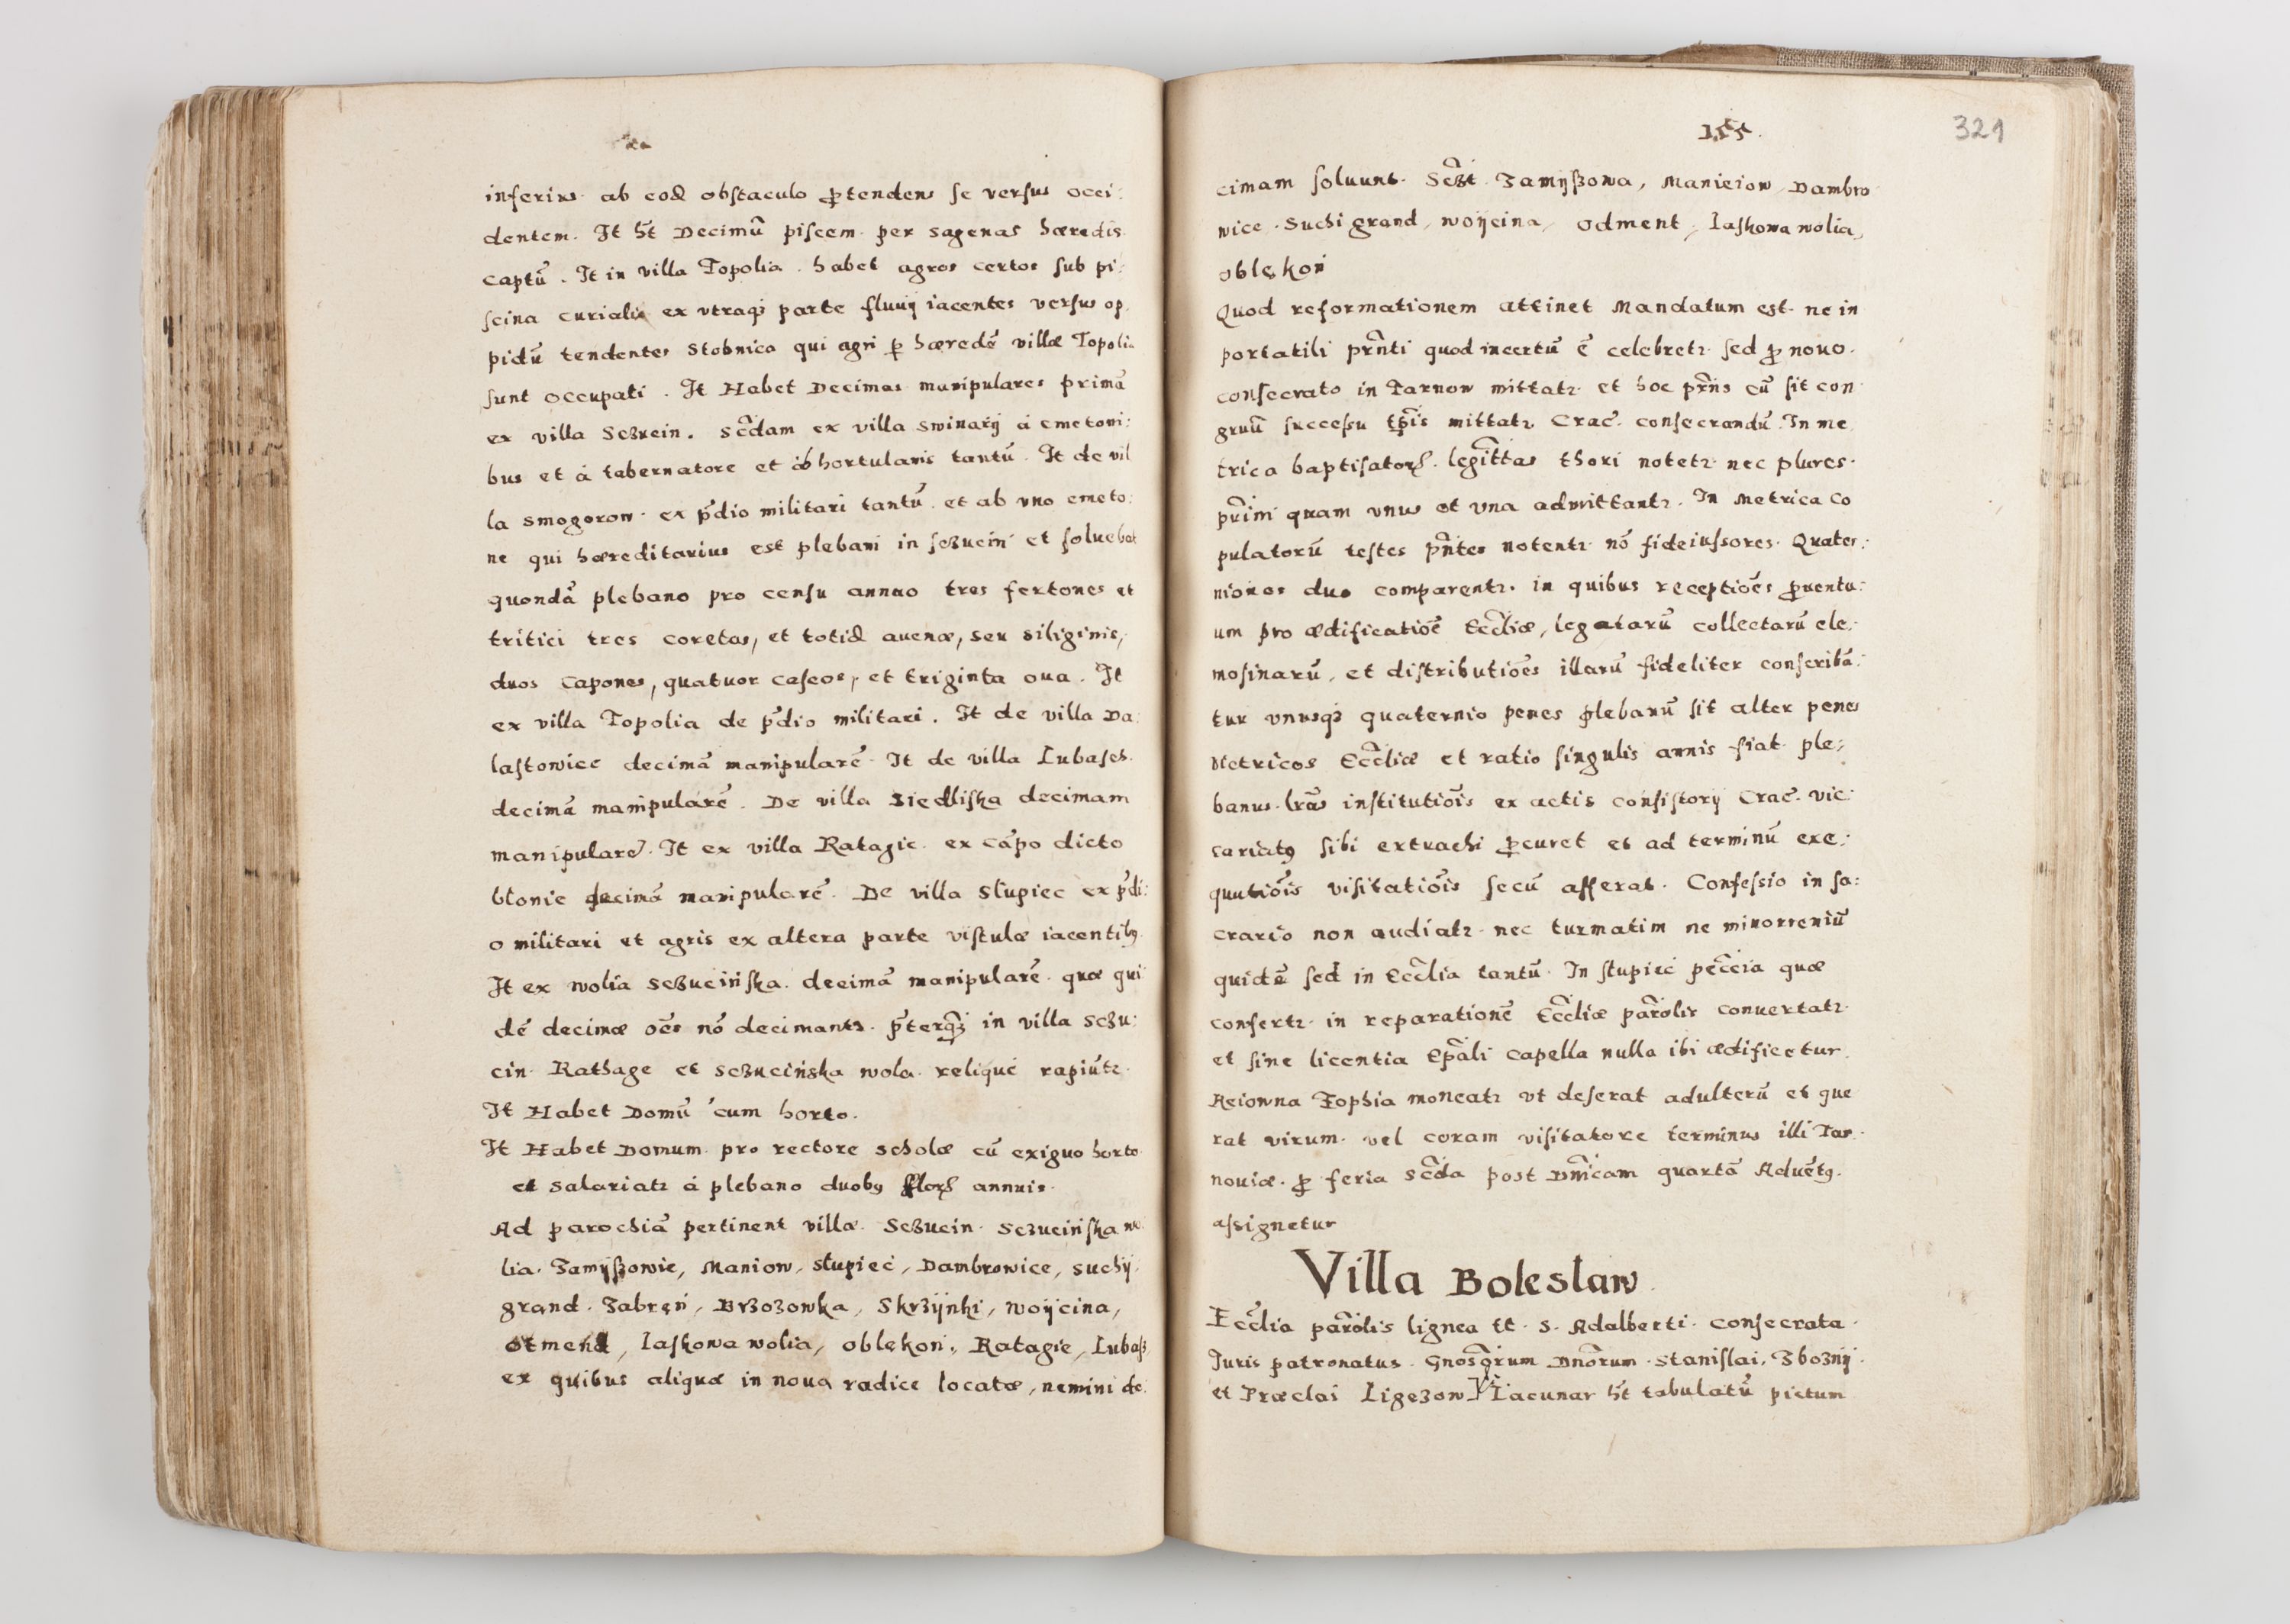 inferius ab eod obstaculo ꝓtendens se versus occi:
dentem. It ht Decimū piscem per sagenas hæredis
captū. It in villa Topolia habet agros certos sub pi:
scina curialis ex vtraqꝫ parte fluuij iacentes versus op.
pidū tendentes Stobnica qui agri ꝑ hæredē villæ Topolia
sunt occupati. It Habet Decimas manipulares primā
ex villa Sczucin. Scdam ex villa Swinarÿ á cmetoni:
bus et á tabernatore et ab hortulanis tantū. It de vil
la Smogorow ex pdio militari tantū et ab vno cmeto:
ne qui hæreditarius est plebani in sczucin et soluebat
quondā plebano pro censu annuo tres fertones et
tritici tres coretos, et totid auenæ, seu siliginis,
duos Capones, quatuor caseos, et triginta oua. It
ex villa Topolia de pdio militari. It de villa Da:
lastowice decimā manipularē. It de villa Lubasch
decimā manipularē. De villa Siedliska decimam
manipularē. It ex villa Ratagie ex cāpo dicto
blonie decimā manipularē. De villa Slupiec ex pdi:
o militari et agris ex altera parte vistulæ iacentibꝯ.
It ex wolia Sczucińska decimā manipularē quæ qui:
dē decimæ oēs nō decimantꝛ. pterqꝫ in villa Sczu:
cin Rathage et Sczucińska wola reliqué rapiūtꝛ.
It Habet Domū cum horto.
It Habet Domum pro rectore scholæ cū exiguo horto
et Salariatꝛ á plebano duobꝯ flor annuis.
Ad parochiā pertinent villæ Sczucin Sczucińska wo
lia. Zamÿszowie, Maniow, Slupiec, Dambrowice, Suchÿ
grand. Zabren, Brzozowka, Skrzÿnki, Woÿcina,
Otmend, Laskowa wolia, Oblękon, Ratagie, Lubasz
ex quibus aliquæ in noua radice locatæ, nemini de:
155. 321
cimam soluunt. Sczt Zamÿszowa, Manieiow Dambro
wice. Suchi grand, Woÿcina, Odment, Laskowa wolia,
oblękoń
Quod reformationem attinet Mandatum est ne in
portatili prnti quod incertū ē celebretꝛ sed ꝓ nouo.
consecrato in Tarnow mittatꝛ et hoc prns cū sit con
gruū successu tpis mittatꝛ Crac. consecrandū. In me
trica baptisator. legittas thori notetꝛ nec plures.
prim quam vnus et vna admittantꝛ. In Metrica Co
pulatorū testes pntes notentꝛ nō fideiussores. Quater:
niones duo comparentꝛ. in quibus receptiōes ꝓuentu:
um pro ædificatiōe Eccliæ, legatarū collectarū ele:
mosinarū, et distributiōes illarū fideliter conscribā:
tur vnusqꝫ quaternio penes plebanū sit alter penes
vietricos Eccliæ et ratio singulis annis fiat ple:
banus. lras institutiōis ex actis consistorij Crac. vic:
cariatꝯ sibi extrachi ꝓcuret et ad terminū exe:
qutiōis visitatiōis secū afferat. Confessio in sa:
crario non audiatꝛ nec turmatim ne minorreniū
quidē sed in Ecclia tantū. In slupiec peccia quæ
confertꝛ in reparationē Eccliæ parolis conuertatꝛ
et sine licentia Epali Capella nulla ibi ædificetur.
Reiowna Zophia moneatꝛ vt deserat adulterū et que
rat virum. vel coram visitatore terminus illi Tar:
nouiæ ꝓ feria scda post Dnicam quartā Aduētꝯ.
assignetur
Villa Boleslaw.
Ecclia parolis lignea tt. S. Adalberti consecrata.
Juris patronatus. Gnosqrum Dnorum Stanislai, Zbozny.
et Præclai Ligezow Lacunar ht tabulatū pictum